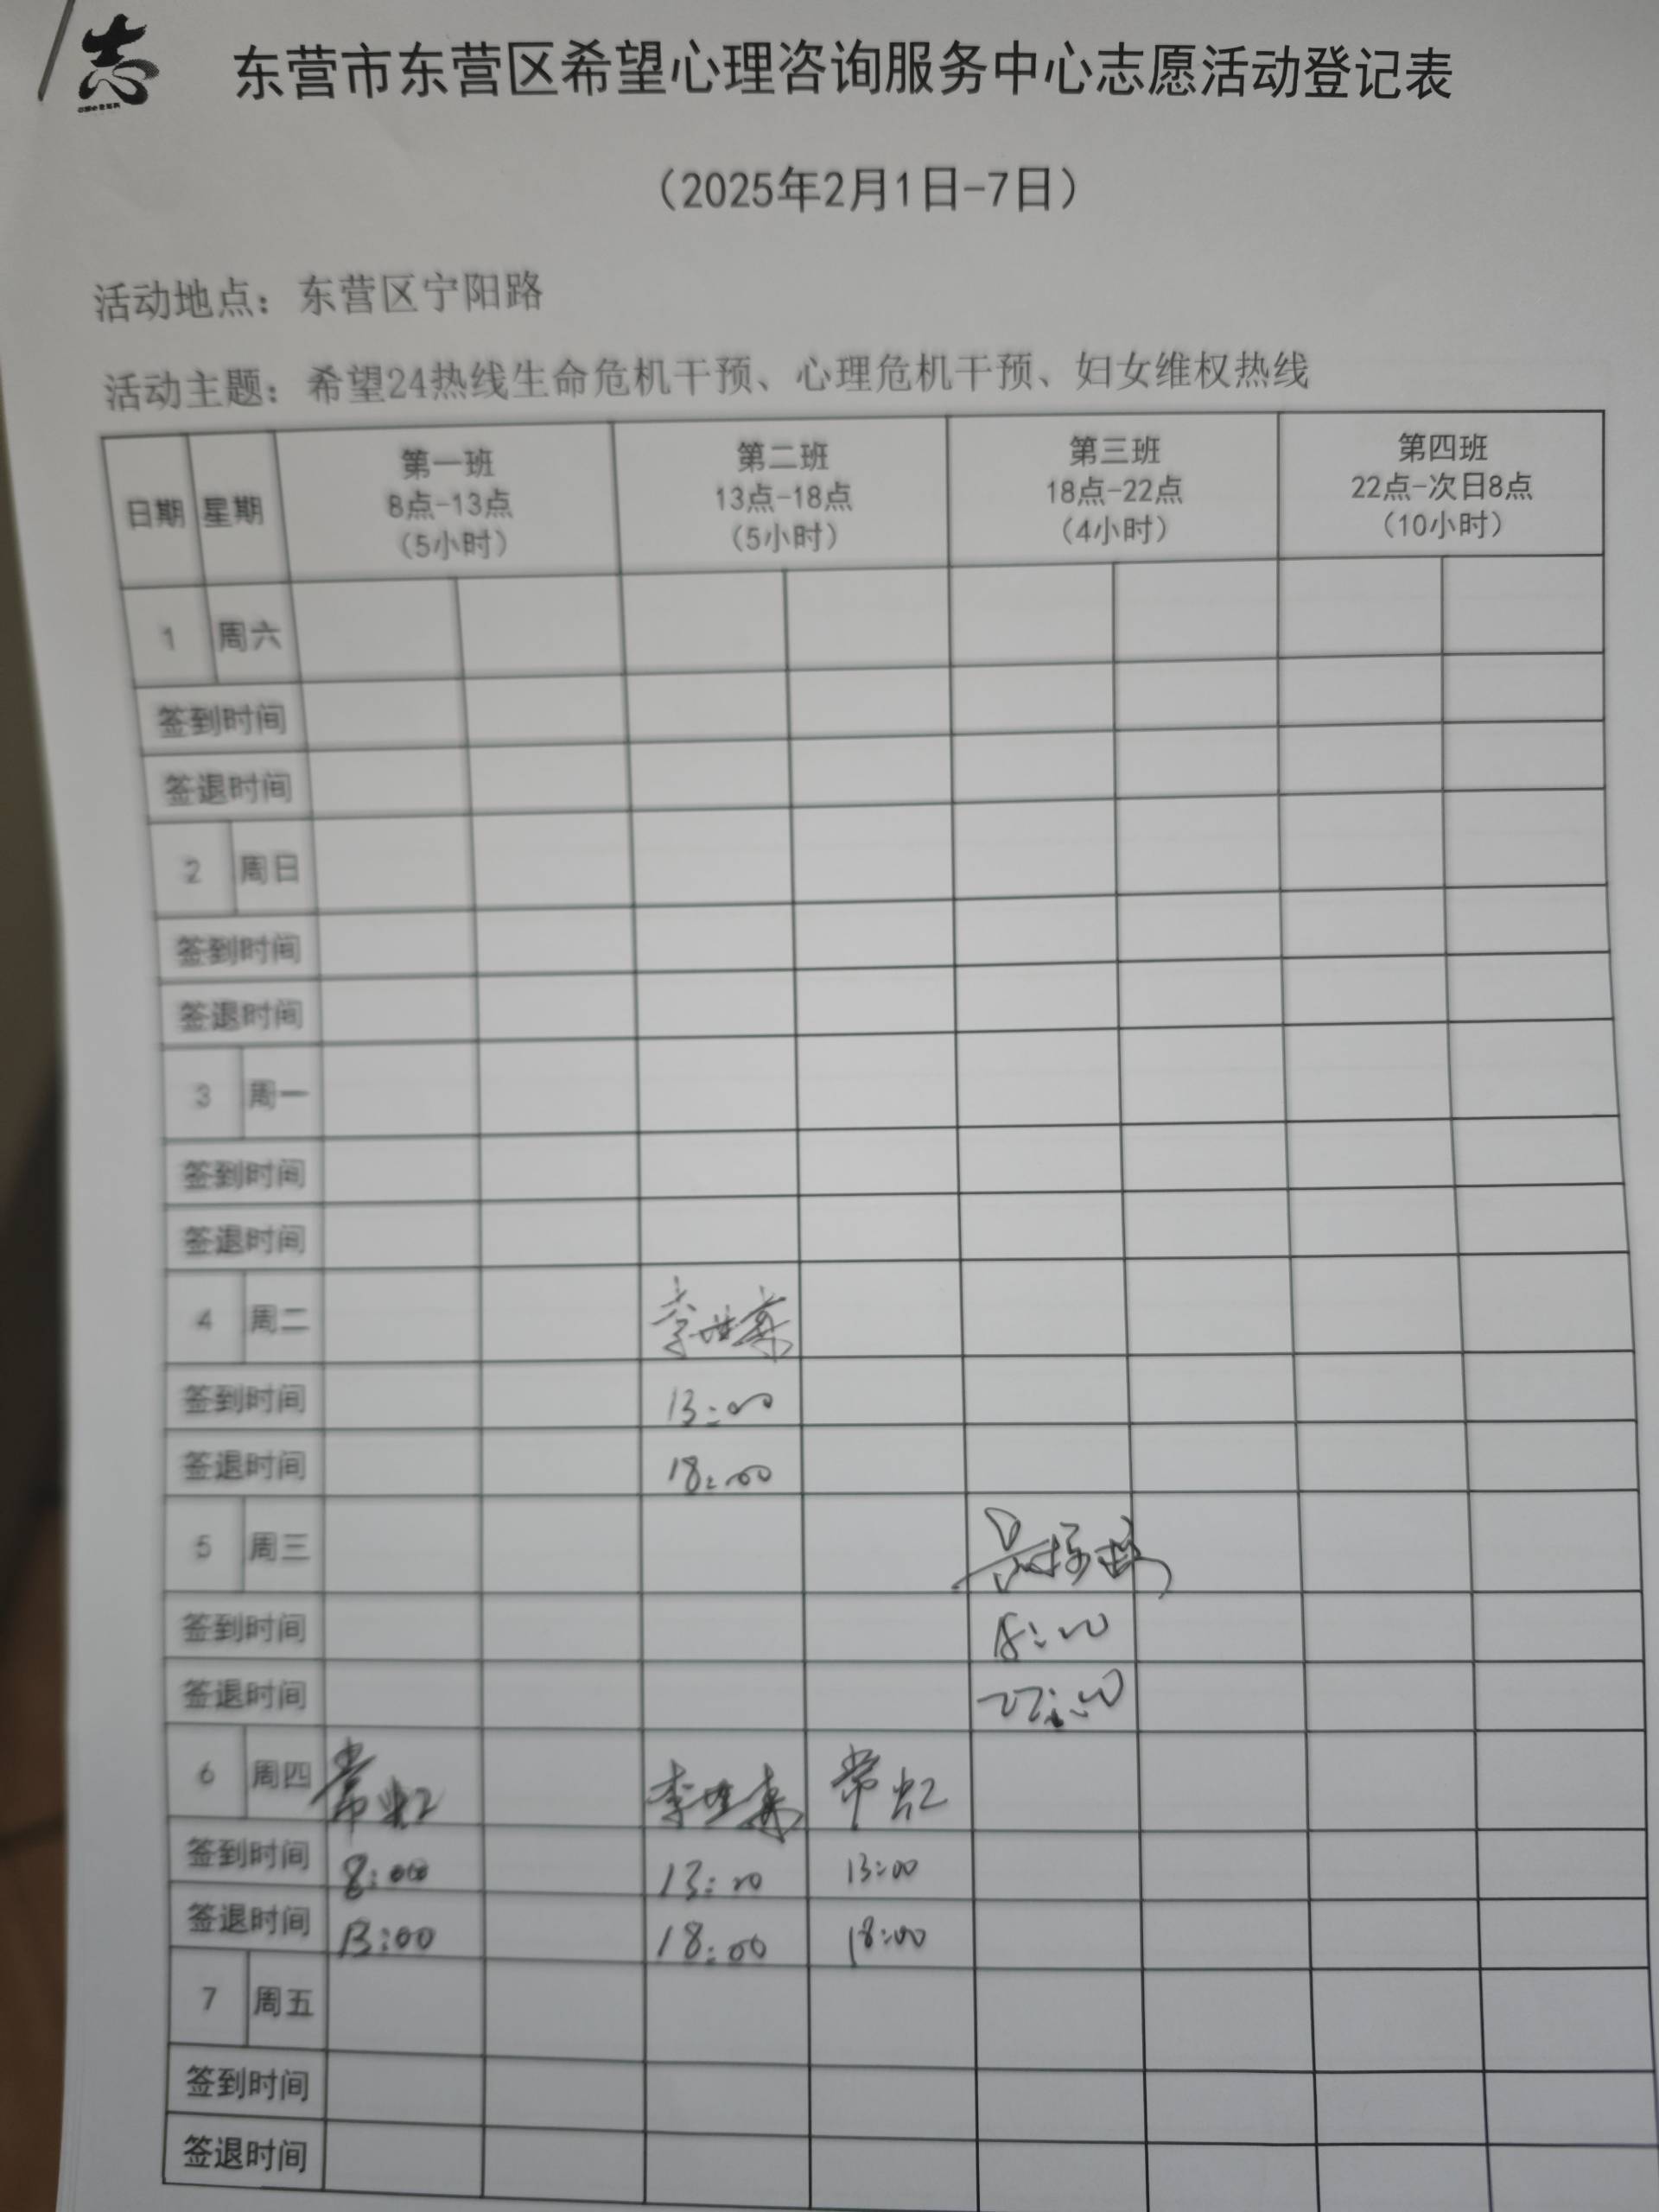 志
东营市东营区希望心理咨询服务中心志愿活动登记表
（2025年2月1日-7日）
活动地点：东营区宁阳路
活动主题：希望24热线生命危机干预、心理危机干预、妇女维权热线
日期 星期 第一班 8点-13点 （5小时） 第二班 13点-18点 （5小时） 第三班 18点-22点 （4小时） 第四班 22点-次日8点 （10小时）
1 周六
签到时间
签退时间
2 周日
签到时间
签退时间
3 周一
签到时间
签退时间
4 周二 李世
签到时间 13:00
签退时间 18:00
5 周三
签到时间 18:00
签退时间 22:00
6 周四 常虹 李世 常虹
签到时间 8:00 13:00 13:00
签退时间 13:00 18:00 18:00
7 周五
签到时间
签退时间